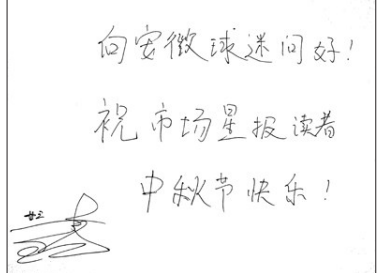 向安微球迷问好！
祝市场星报读者
中秋节快乐！